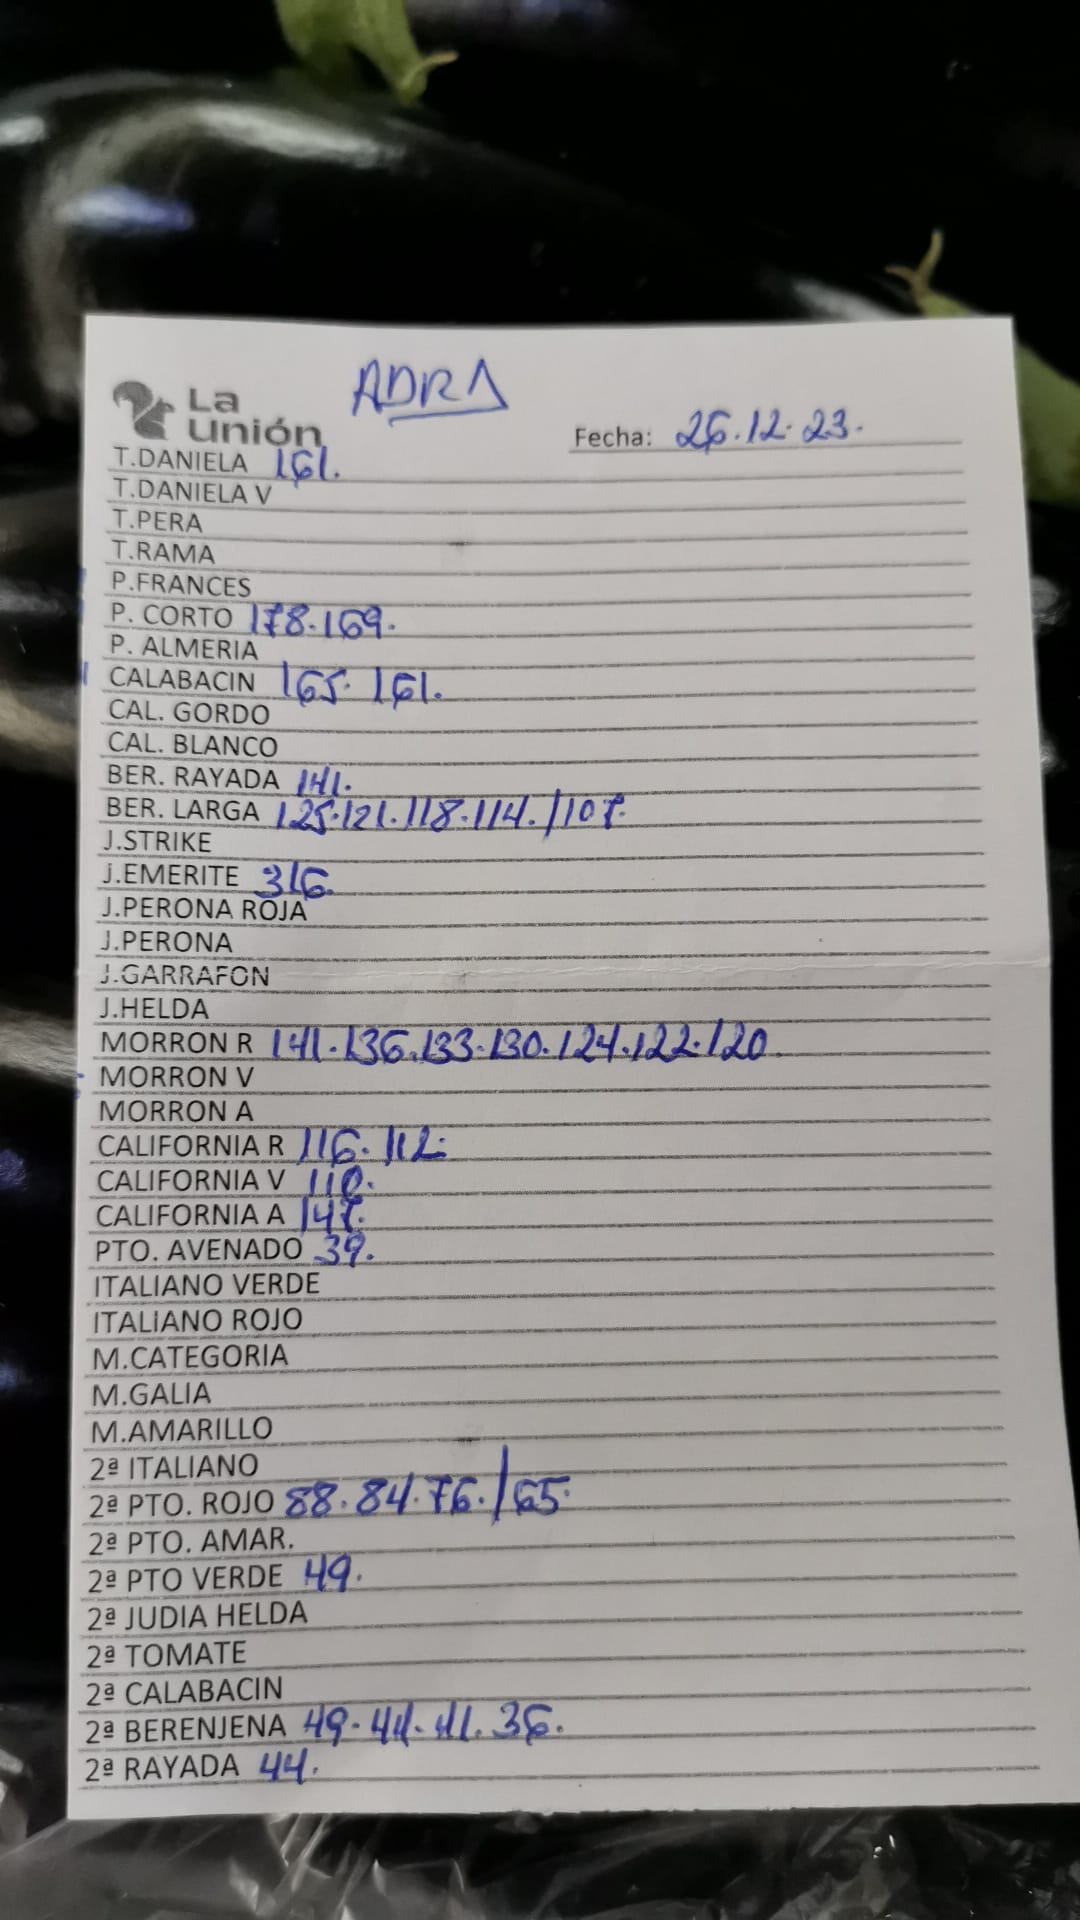 ADRA
La
Unión
Fecha: 26.12.23.
T.DANIELA 161.
T.DANIELA V
T.PERA
T.RAMA
P.FRANCES
P. CORTO 178.169.
P. ALMERIA
CALABACIN 165. 161.
CAL. GORDO
CAL. BLANCO
BER. RAYADA 141.
BER. LARGA 125.121.118.114./107.
J.STRIKE
J.EMERITE 316.
J.PERONA ROJA
J.PERONA
J.GARRAFON
J.HELDA
MORRON R 141.136.133.130.124.122.120.
MORRON V
MORRON A
CALIFORNIA R 116. 112.
CALIFORNIA V
CALIFORNIA A 147.
PTO. AVENADO 39.
ITALIANO VERDE
ITALIANO ROJO
M.CATEGORIA
M.GALIA
M.AMARILLO
2ª ITALIANO
2ª PTO. ROJO 88.84.76./65.
2ª PTO. AMAR.
2ª PTO VERDE 49.
2ª JUDIA HELDA
2ª TOMATE
2ª CALABACIN
2ª BERENJENA 49.44.41.36.
2ª RAYADA 44.